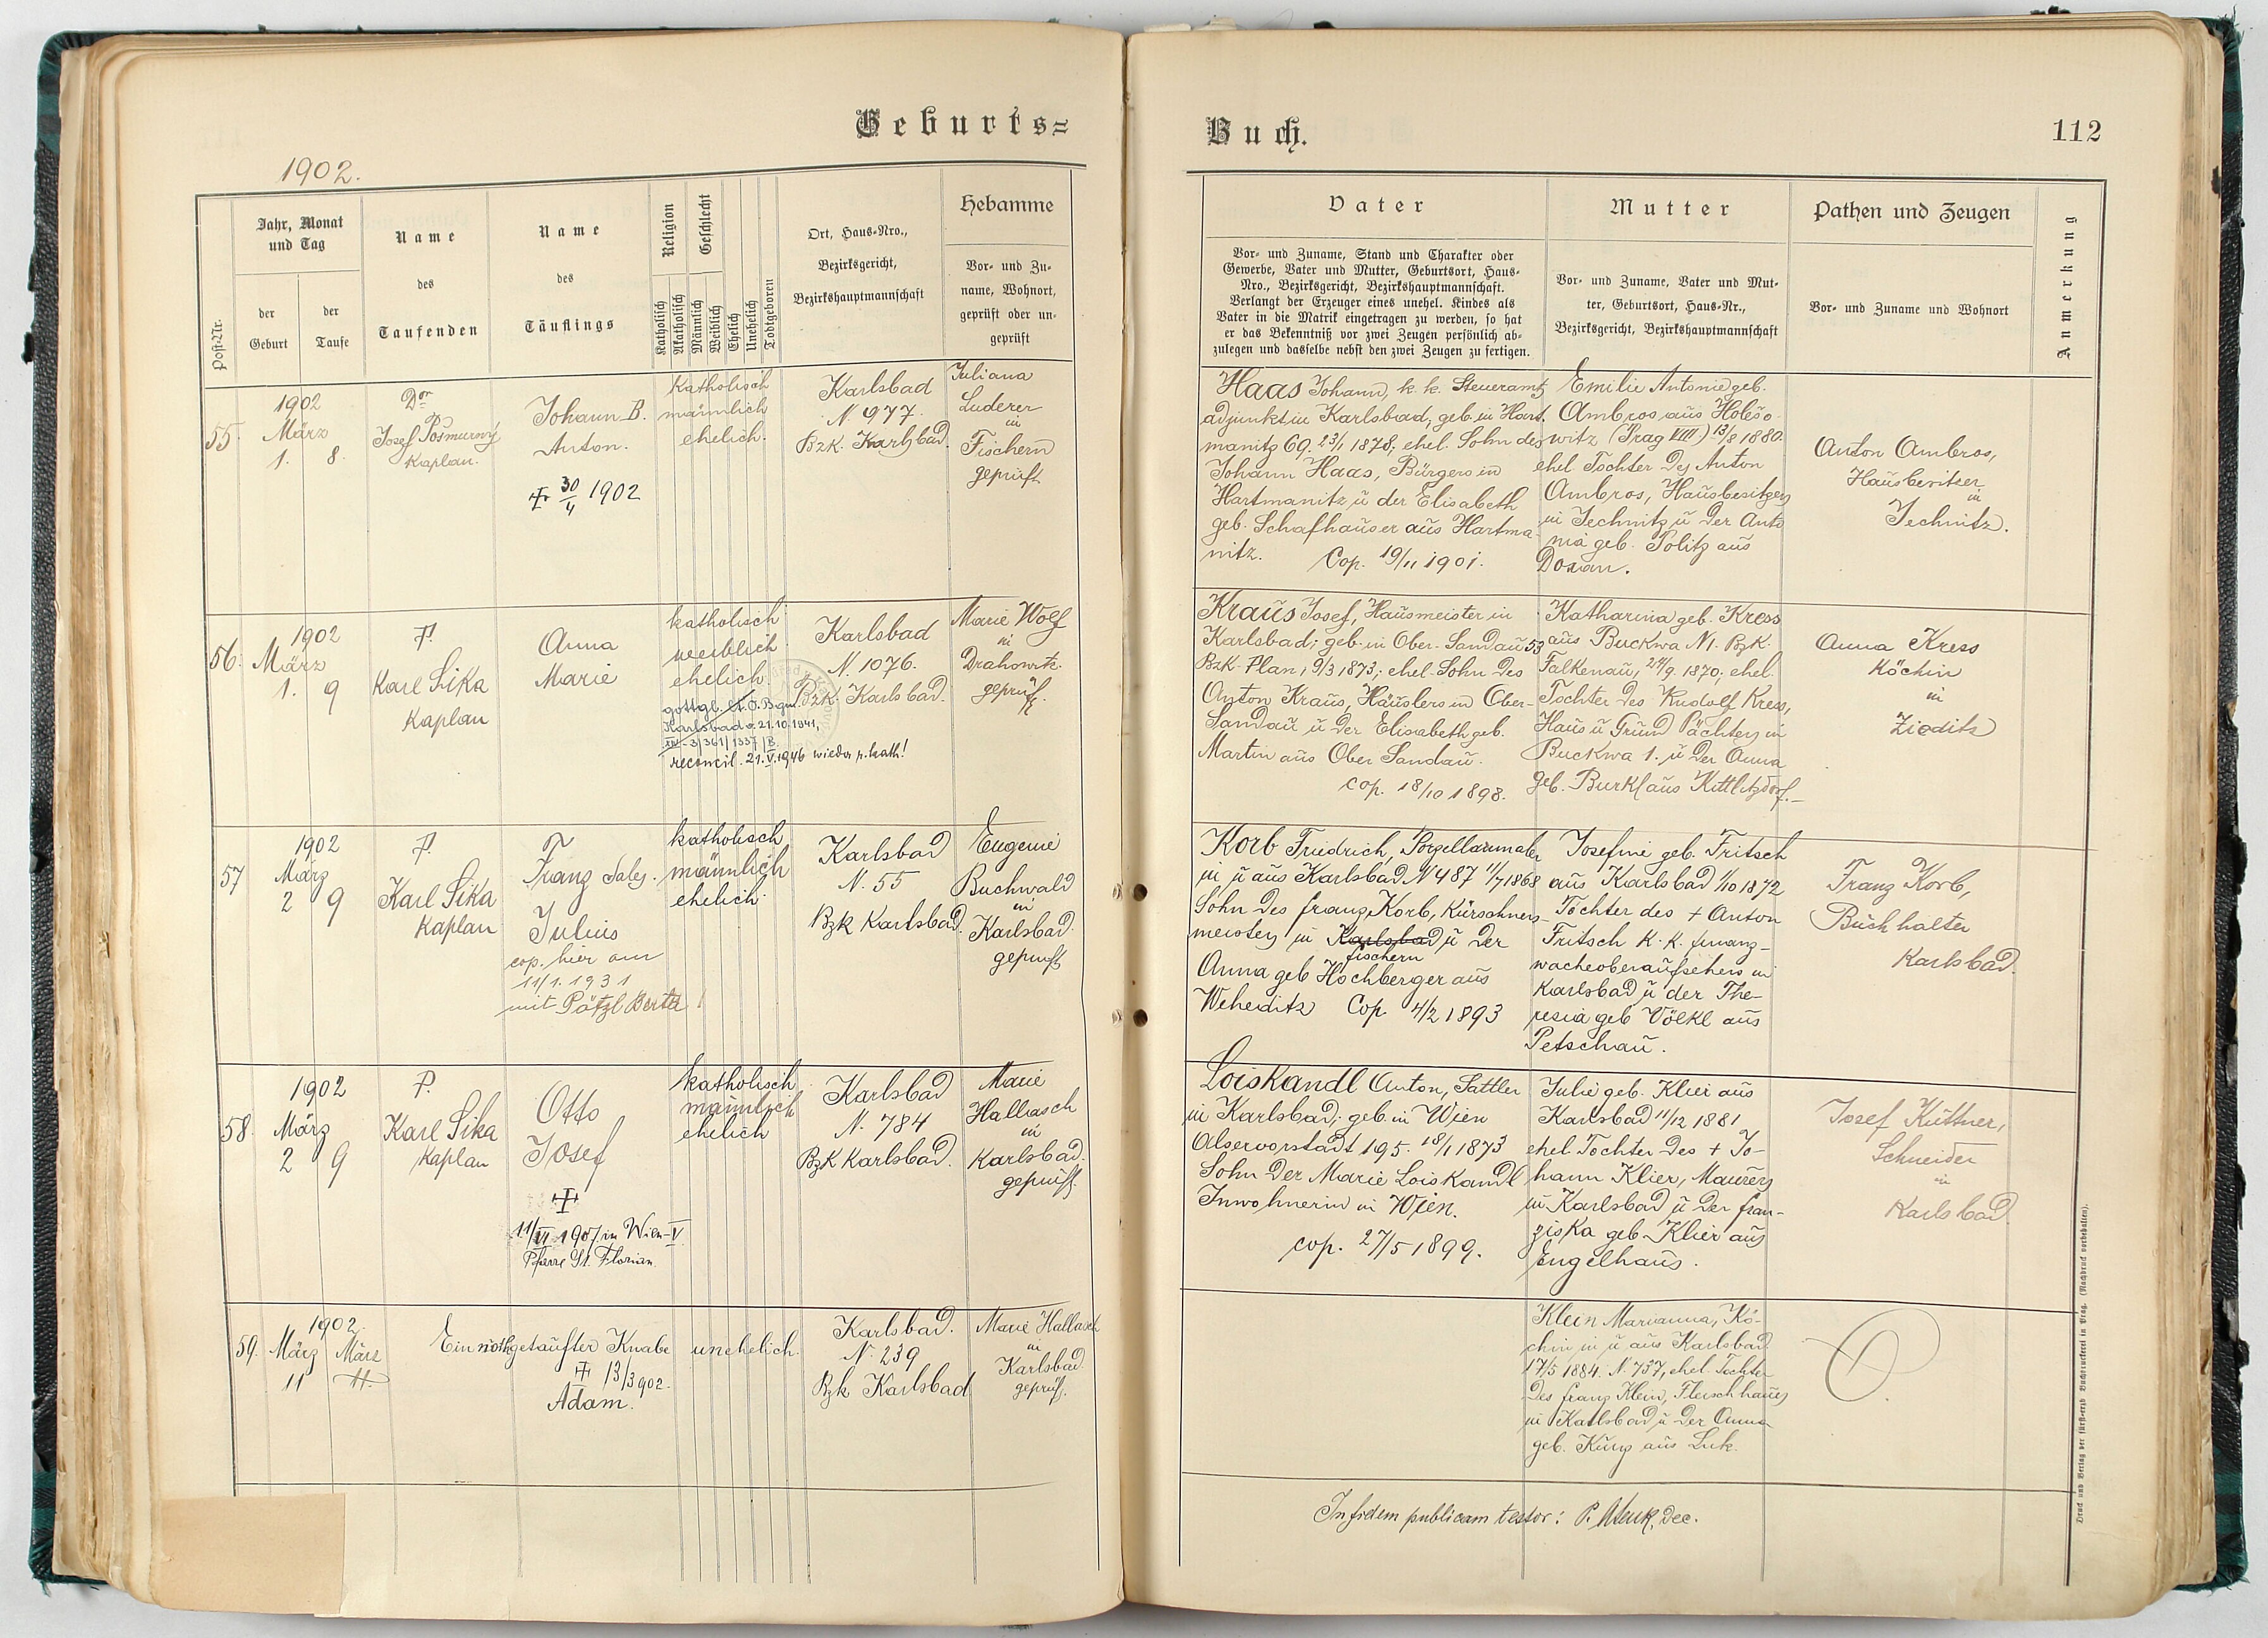 Geburts=
1902.
Post-Nr.
Jahr, Monat
und Tag
der
Geburt
der
Taufe
Name
des
Taufenden
Name
des
Täuflings
Religion
Geschlecht
Katholisch
Akatholisch
Männlich
Weiblich
Ehelich
Unehelich
Todtgeboren
Ort, Haus-Nro.,
Bezirksgericht,
Bezirkshauptmannschaft
Hebamme
Vor- und Zu-
name, Wohnort,
geprüft oder un-
geprüft
55.
1902
März
1. 8.
Dor
Josef Pošmurný
Kaplan.
Johann B.
Anton.
30/4 1902
katholisch
männlich
ehelich.
Karlsbad
N. 977.
Bzk. Karlsbad.
Juliana
Luderer
in
Fischern
geprüft
56.
1902
März
1. 9
P.
Karl Sika
Kaplan
Anna
Marie
katholisch
weiblich
ehelich
gottgl. Lt. Ö. Bgm.
Karlsbad v. 21.10.1941,
XIV-3/361/1337/B.
reconcil. 21.V.1946 wieder r. kath!
Karlsbad
N. 1076.
Bzk. Karlsbad.
Marie Wolf
in
Drahowitz
geprüft.
57
1902
März
2 9
P.
Karl Sika
Kaplan
Franz Sales.
Julius
cop. hier am
11/1. 1931
mit Pötzl Berta!
katholisch
männlich
ehelich.
Karlsbad
N. 55
Bzk Karlsbad.
Eugenie
Buchwald
in
Karlsbad.
geprüft
58.
1902
März
2 9
P.
Karl Sika
Kaplan
Otto
Josef
11/VI 1907 in Wien-V
Pfarre St. Florian.
katholisch
männlich
ehelich
Karlsbad
N. 784
Bzk Karlsbad.
Marie
Hallasch
in
Karlsbad.
geprüft.
59.
1902.
März März
11 11.
Ein nothgetaufter Knabe
13/3 902.
Adam.
unehelich.
Karlsbad.
N. 239
Bzk Karlsbad
Marie Hallasch
in
Karlsbad
geprüft.
Buch.
112
Vater
Vor- und Zuname, Stand und Charakter oder
Gewerbe, Vater und Mutter, Geburtsort, Haus-
Nro., Bezirksgericht, Bezirkshauptmannschaft.
Verlangt der Erzeuger eines unehel. Kindes als
Vater in die Matrik eingetragen zu werden, so hat
er das Bekenntniß vor zwei Zeugen persönlich ab-
zulegen und dasselbe nebst den zwei Zeugen zu fertigen.
Mutter
Vor- und Zuname, Vater und Mut-
ter, Geburtsort, Haus-Nr.,
Bezirksgericht, Bezirkshauptmannschaft
Pathen und Zeugen
Vor- und Zuname und Wohnort
Anmerkung
Haas Johann, k. k. Steueramts
adjunkt in Karlsbad, geb. in Hart.
manitz 69. 23/1 1878; ehel. Sohn des
Johann Haas, Bürgers in
Hartmanitz ü der Elisabeth
geb. Schafhauser aus Hartma
nitz. Cop. 19/11 1901.
Emilie Antonie geb.
Ambros aus Holešo
witz (Prag VIII) 13/8 1880.
ehel Tochter des Anton
Ambros, Hausbesitzers
in Jechnitz ü der Anto
nia geb. Politz aus
Doxan.
Anton Ambros,
Hausbesitzer
in
Jechnitz.
Kraus Josef, Hausmeister in
Karlsbad; geb. in Ober-Sandau 53
Bzk. Plan, 9/3 1873; ehel. Sohn des
Anton Kraus, Häuslers in Ober-
Sandau ü der Elisabeth geb.
Martin aus Ober Sandau.
cop. 18/10 1898.
Katharina geb. Kress
aus Buckwa N1. Bzk.
Falkenau, 24/9. 1870; ehel.
Tochter des Rudolf Kress,
Haus ü Grund Pächters in
Buckwa 1. ü der Anna
geb. Burkl aus Kittlitzdorf.
Anna Kress
Köchin
in
Zieditz
Korb Friedrich, Porzellanmaler
in ü aus Karlsbad N 487 11/7 1868
Sohn des Franz Korb, Kürschner-
meisters in Karlsbad ü der
Fischern
Anna geb Hochberger aus
Weheditz Cop. 4/2 1893
Josefine geb. Fritsch
aus Karlsbad 1/10 1872
Tochter des + Anton
Fritsch K. K. finanz-
wacheoberaufsehers in
Karlsbad ü der The-
resia geb Völkl aus
Petschau.
Franz Korb,
Buchhalter
Karlsbad.
Loiskandl Anton, Sattler
in Karlsbad; geb. in Wien
Alservorstadt 195. 18/1 1873
Sohn der Marie Loiskandl
Inwohnerin in Wien.
cop. 27/5 1899.
Julie geb. Klier aus
Karlsbad 11/12 1881
ehel Tochter des + Jo-
hann Klier, Maurers
in Karlsbad ü der fran-
ziska geb. Klier aus
Engelhaus.
Josef Küttner,
Schneider
in
Karlsbad.
Klein Marianna, Kö-
chin in ü aus Karlsbad
17/5 1884. N. 737, ehel. Tochter
des franz Klein, Fleischhauers
in Karlsbad ü der Anna
geb. Kunz aus Luk.
In fidem publicam testor: P. dec.
Druck und Verlag der fürst-erzb Buchdruckerei in Prag. (Nachdruck vorbehalten).